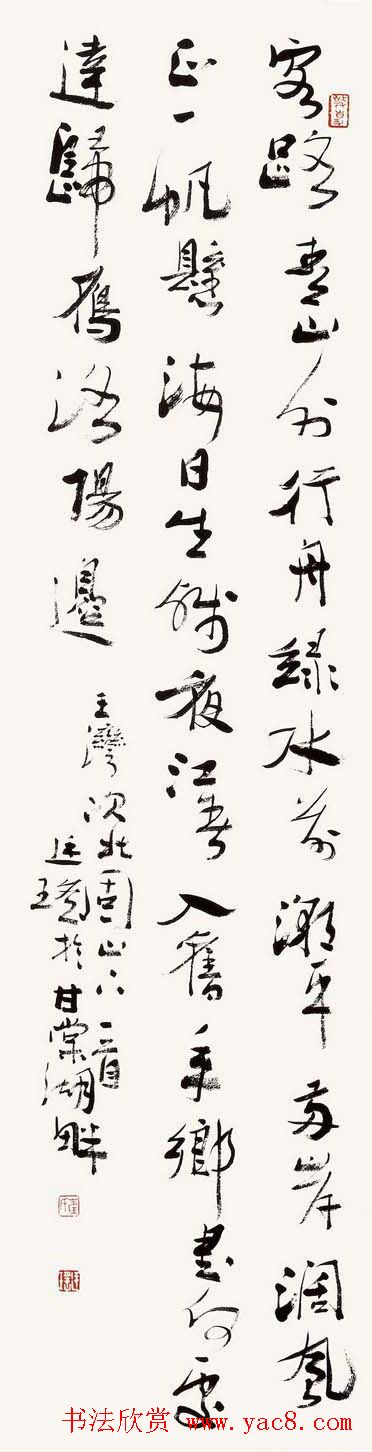 客路青山外行舟緑水前潮平兩岸闊風
正一帆懸海日生殘夜江春入舊年鄉書何處
達歸鴈洛陽邊
王灣次北固山下一首
於甘棠湖畔
书法欣赏 www.yac8.com